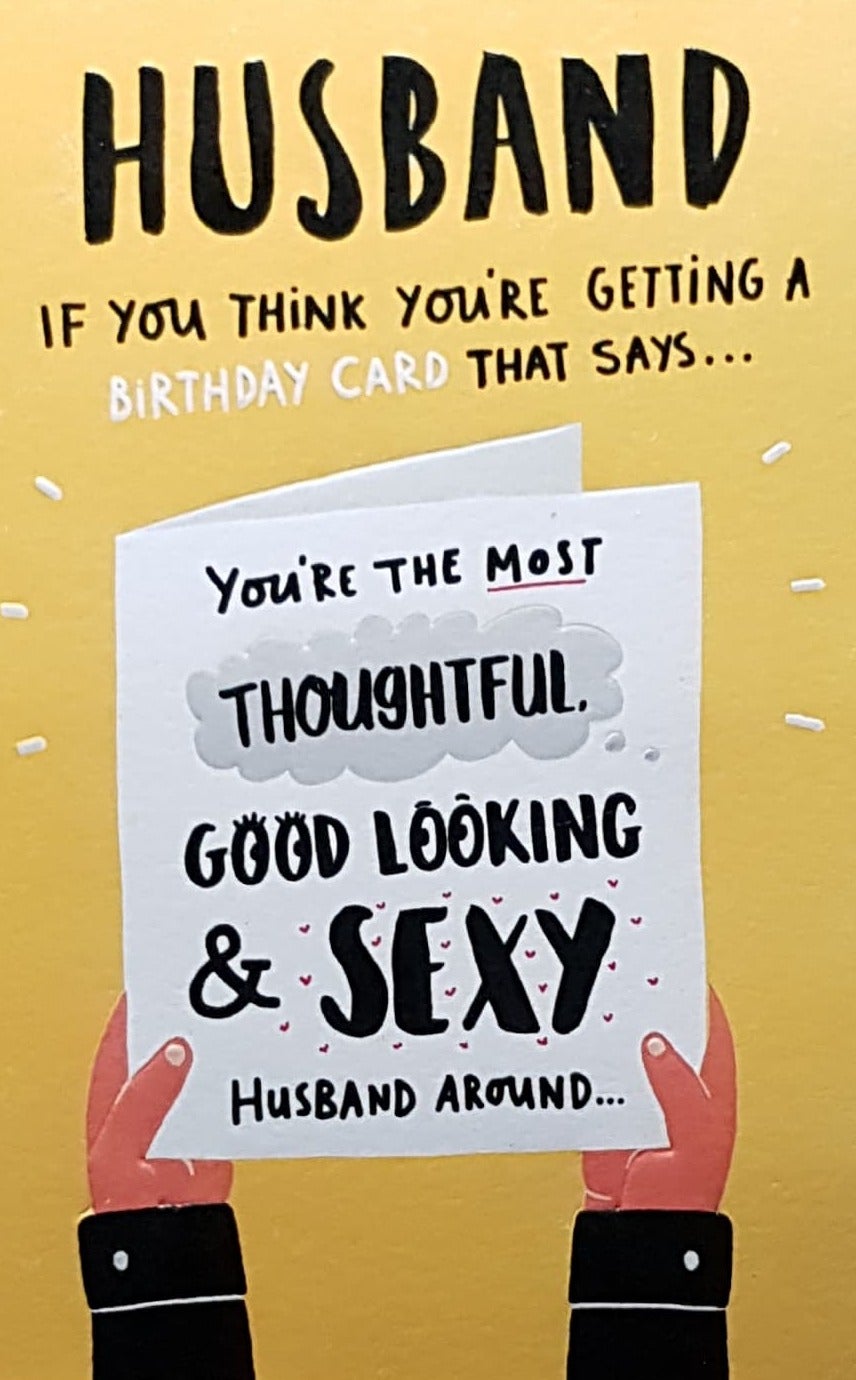 HUSBAND
IF YOU THINK YOU'RE GETTING A
BIRTHDAY CARD THAT SAYS...
YOU'RE THE MOST
THOUGHTFUL,
GOOD LOOKING
& SEXY
HUSBAND AROUND...